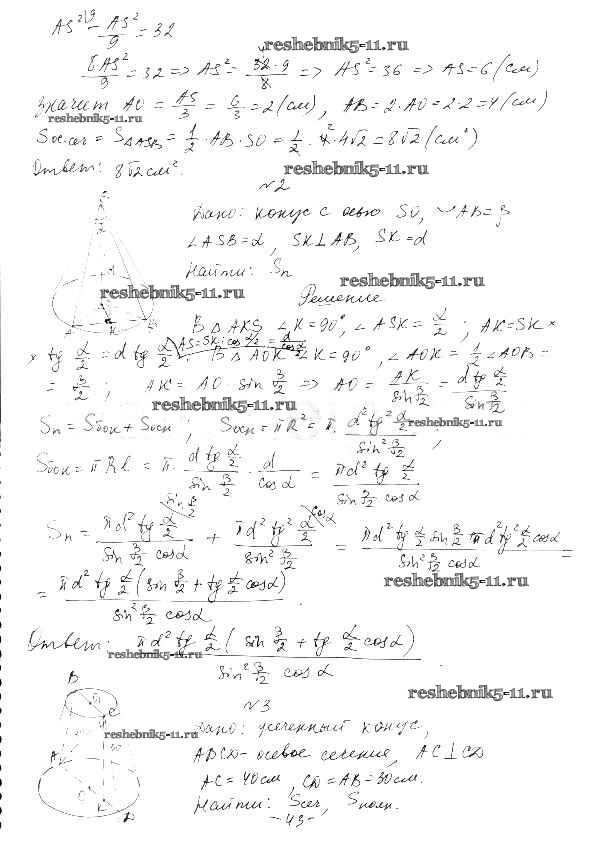 AS² - AS²/9 = 32
8AS²/9 = 32 => AS² = 32·9/8 => AS² = 36 => AS = 6 (см)
reshebnik5-11.ru
Значит AO = AS/3 = 6/3 = 2 (см), AB = 2·AO = 2·2 = 4 (см)
reshebnik5-11.ru
Sос.сеч = S△ASB = 1/2 · AB · SO = 1/2 · 4 · 4√2 = 8√2 (см²)
Ответ: 8√2 см².
reshebnik5-11.ru
№2
Дано: конус с осью SO, ◡AB = β
∠ASB = α, SK⊥AB, SK = d
Найти: Sп
reshebnik5-11.ru
reshebnik5-11.ru
Решение
В △AKS ∠K = 90°, ∠ASK = α/2; AK = SK ×
× tg α/2 = d tg α/2. AS = SK : cos α/2 = d/cos α/2 В △AOK ∠K = 90°, ∠AOK = 1/2 ∠AOB =
= β/2; AK = AO · sin β/2 => AO = AK/sin β/2 = d tg α/2 / sin β/2
reshebnik5-11.ru
Sп = Sбок + Sосн; Sосн = πR² = π · d² tg² α/2 / sin² β/2;
reshebnik5-11.ru
Sбок = πRl = π · d tg α/2 / sin β/2 · d/cos α = πd² tg α/2 / sin β/2 cos α
Sп = πd² tg α/2 / sin β/2 cos α + πd² tg² α/2 / sin² β/2 = πd² tg α/2 sin β/2 + πd² tg² α/2 cos α / sin² β/2 cos α =
reshebnik5-11.ru
= πd² tg α/2 (sin β/2 + tg α/2 cos α) / sin² β/2 cos α
Ответ: πd² tg α/2 (sin β/2 + tg α/2 cos α) / sin² β/2 cos α
reshebnik5-11.ru
reshebnik5-11.ru
№3
Дано: усеченный конус,
reshebnik5-11.ru
ABCD - осевое сечение, AC⊥CD
AC = 40 см, CD = AB = 30 см.
Найти: Sсеч, Sполн.
- 43 -